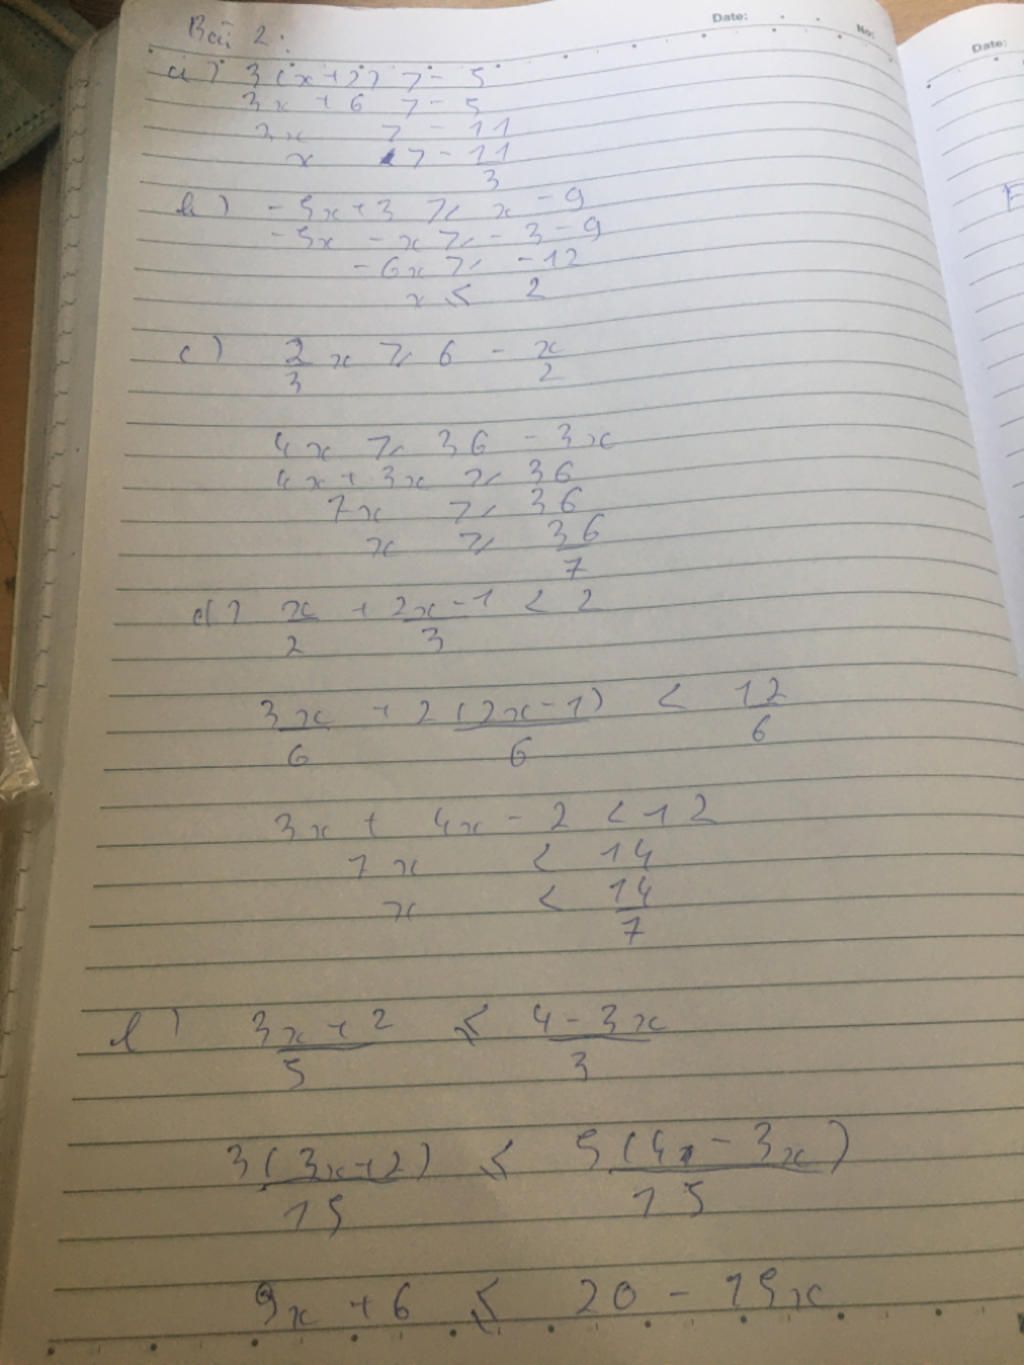 Date:
No:
Date:
Bài 2:
a) 3(x+2) > -5
3x + 6 > -5
3x > -11
x > -11/3
b) -5x+3 ≥ x - 9
-5x - x ≥ -3-9
-6x ≥ -12
x ≤ 2
c) 2/3 x ≥ 6 - x/2
4x ≥ 36 - 3x
4x + 3x ≥ 36
7x ≥ 36
x ≥ 36/7
d) x/2 + 2x-1/3 < 2
3x/6 + 2(2x-1)/6 < 12/6
3x + 4x - 2 < 12
7x < 14
x < 14/7
e) 3x+2/5 ≤ 4-3x/3
3(3x+2)/15 ≤ 5(4-3x)/15
9x + 6 ≤ 20 - 15x